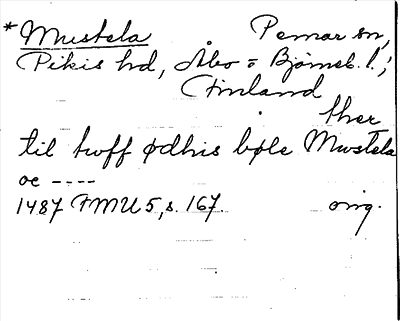 * Mustela Pemar sn,
Pikis hd, Åbo = Björneb. l.;
(Finland
ther
til hoff ødhis bøle Mustela
oc ----
1487 FMU 5, s. 167. orig.